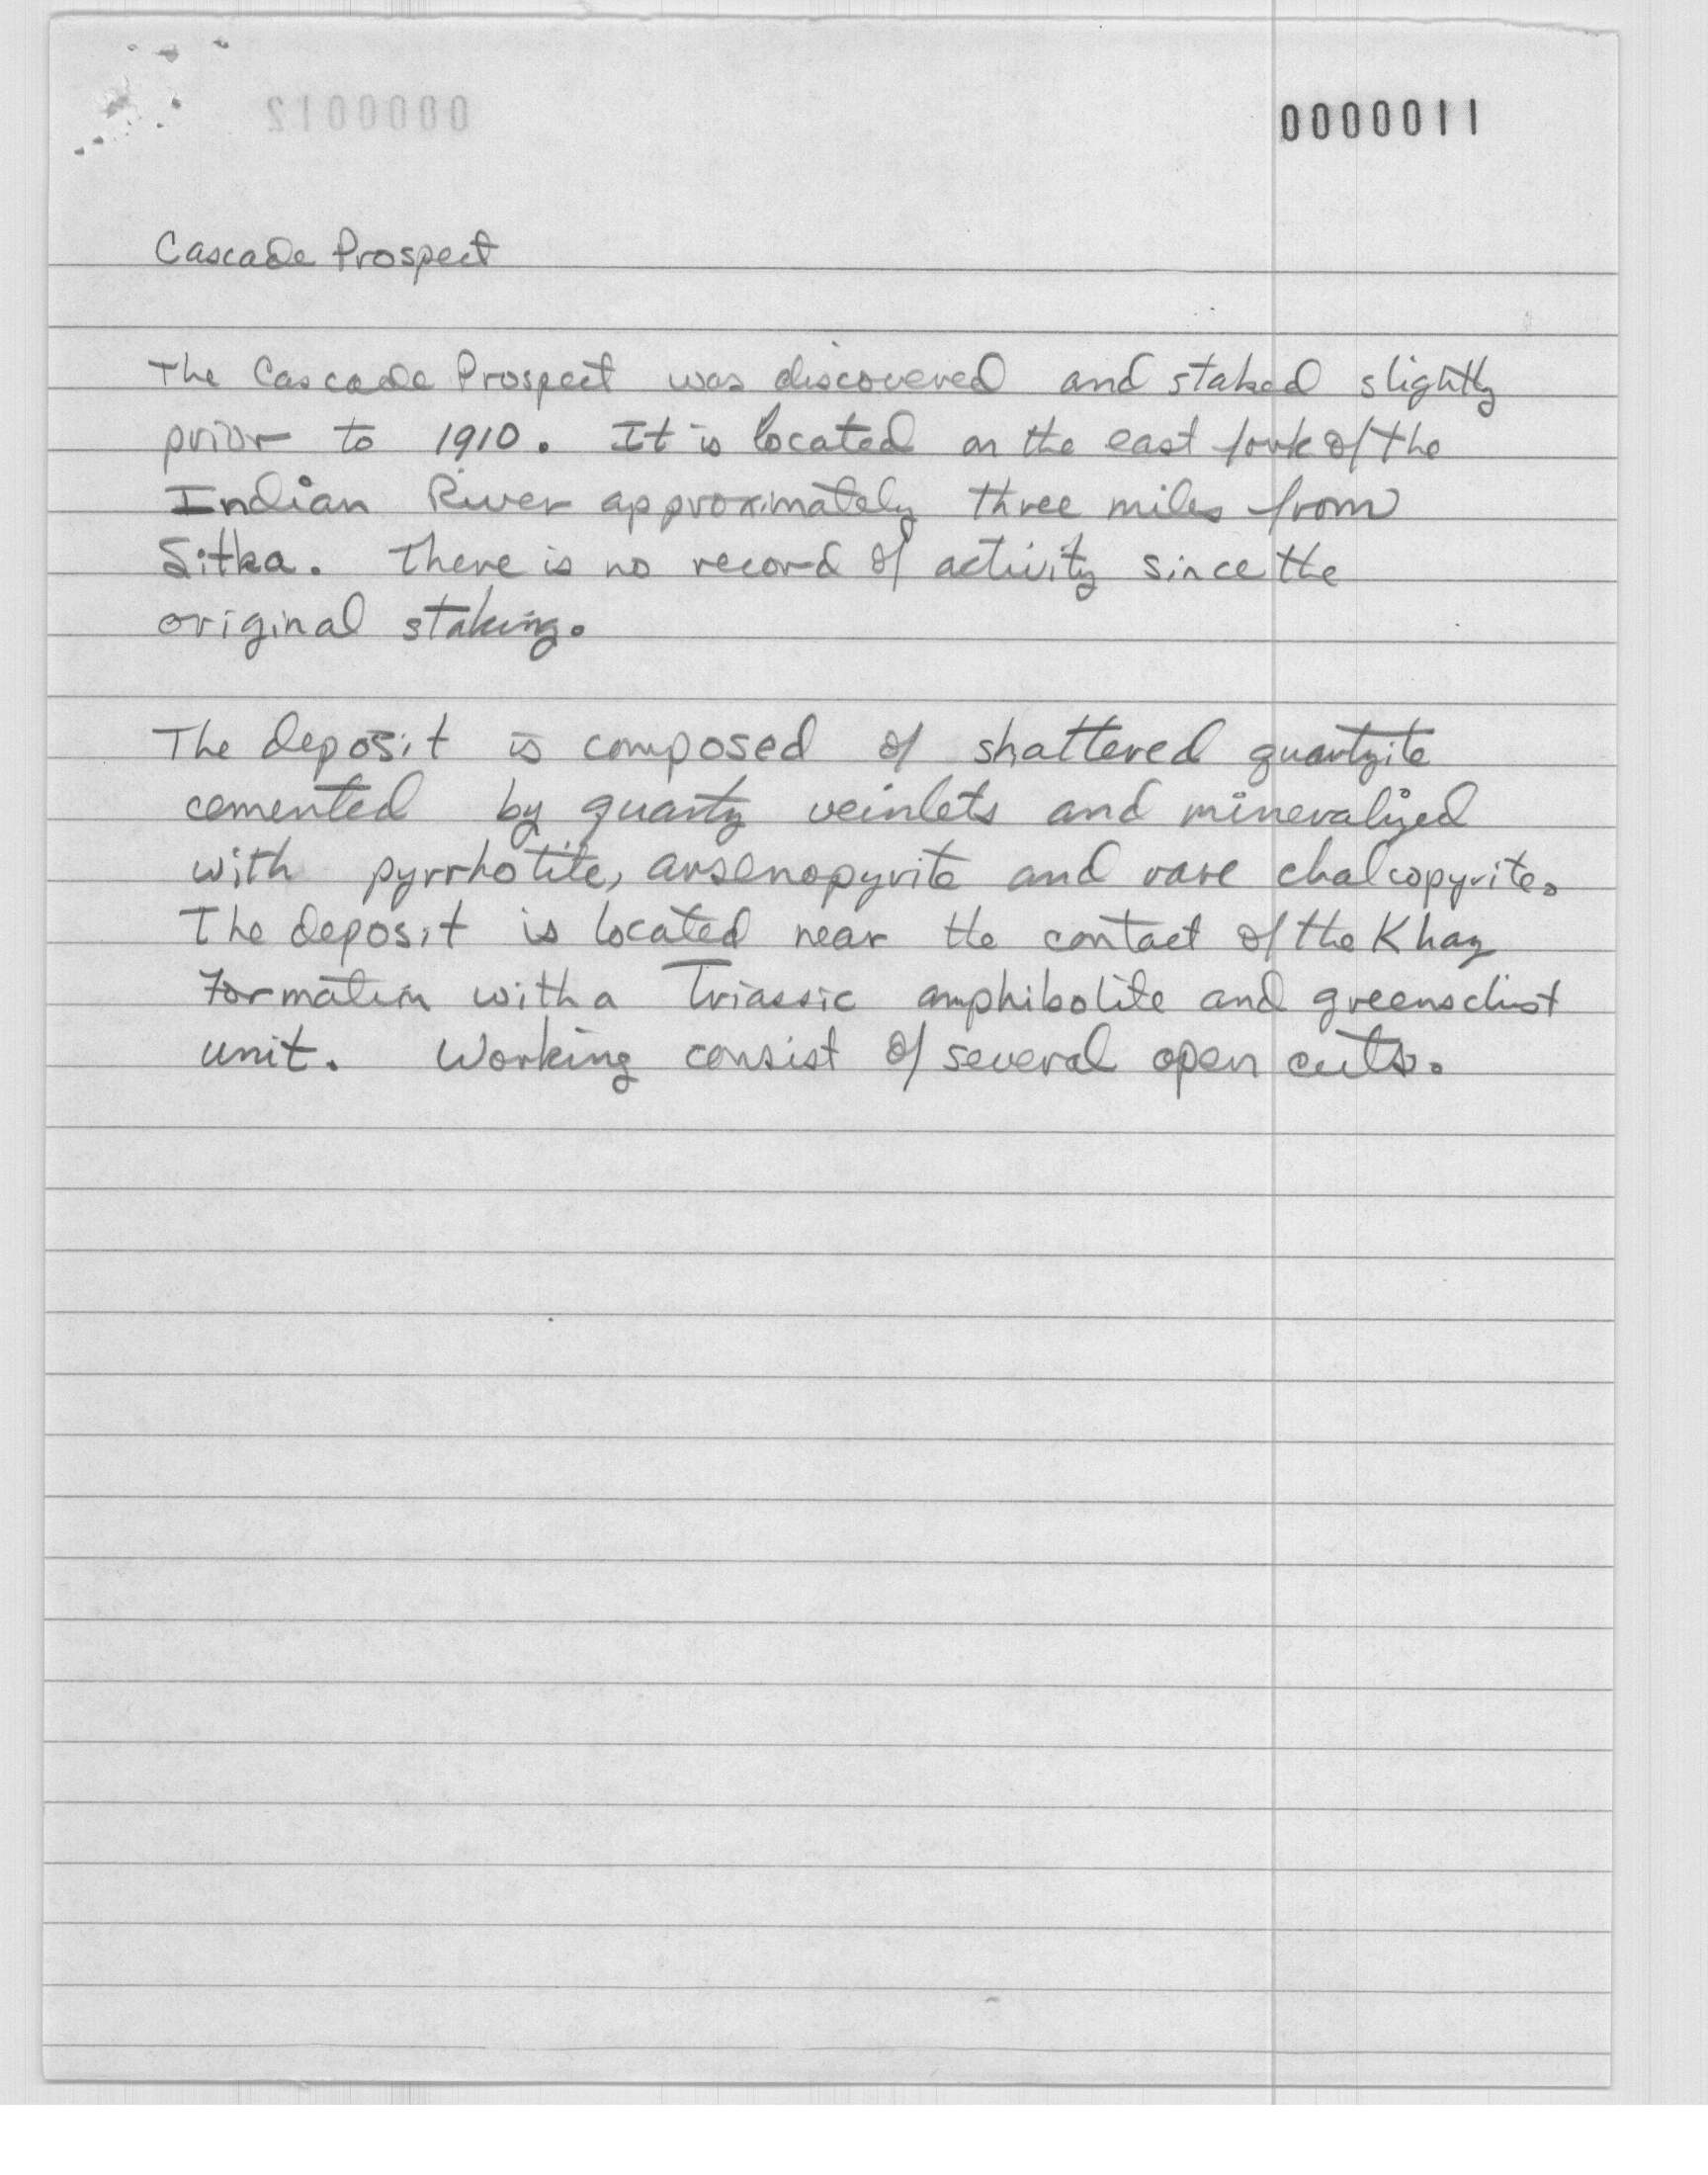 0000011
0000012
Cascade Prospect
The Cascade Prospect was discovered and staked slightly
prior to 1910. It is located on the east fork of the
Indian River approximately three miles from
Sitka. There is no record of activity since the
original staking.
The deposit is composed of shattered quartzite
cemented by quartz veinlets and mineralized
with pyrrhotite, arsenopyrite and rare chalcopyrite.
The deposit is located near the contact of the Khaz
Formation with a Triassic amphibolite and greenschist
unit. Working consist of several open cuts.